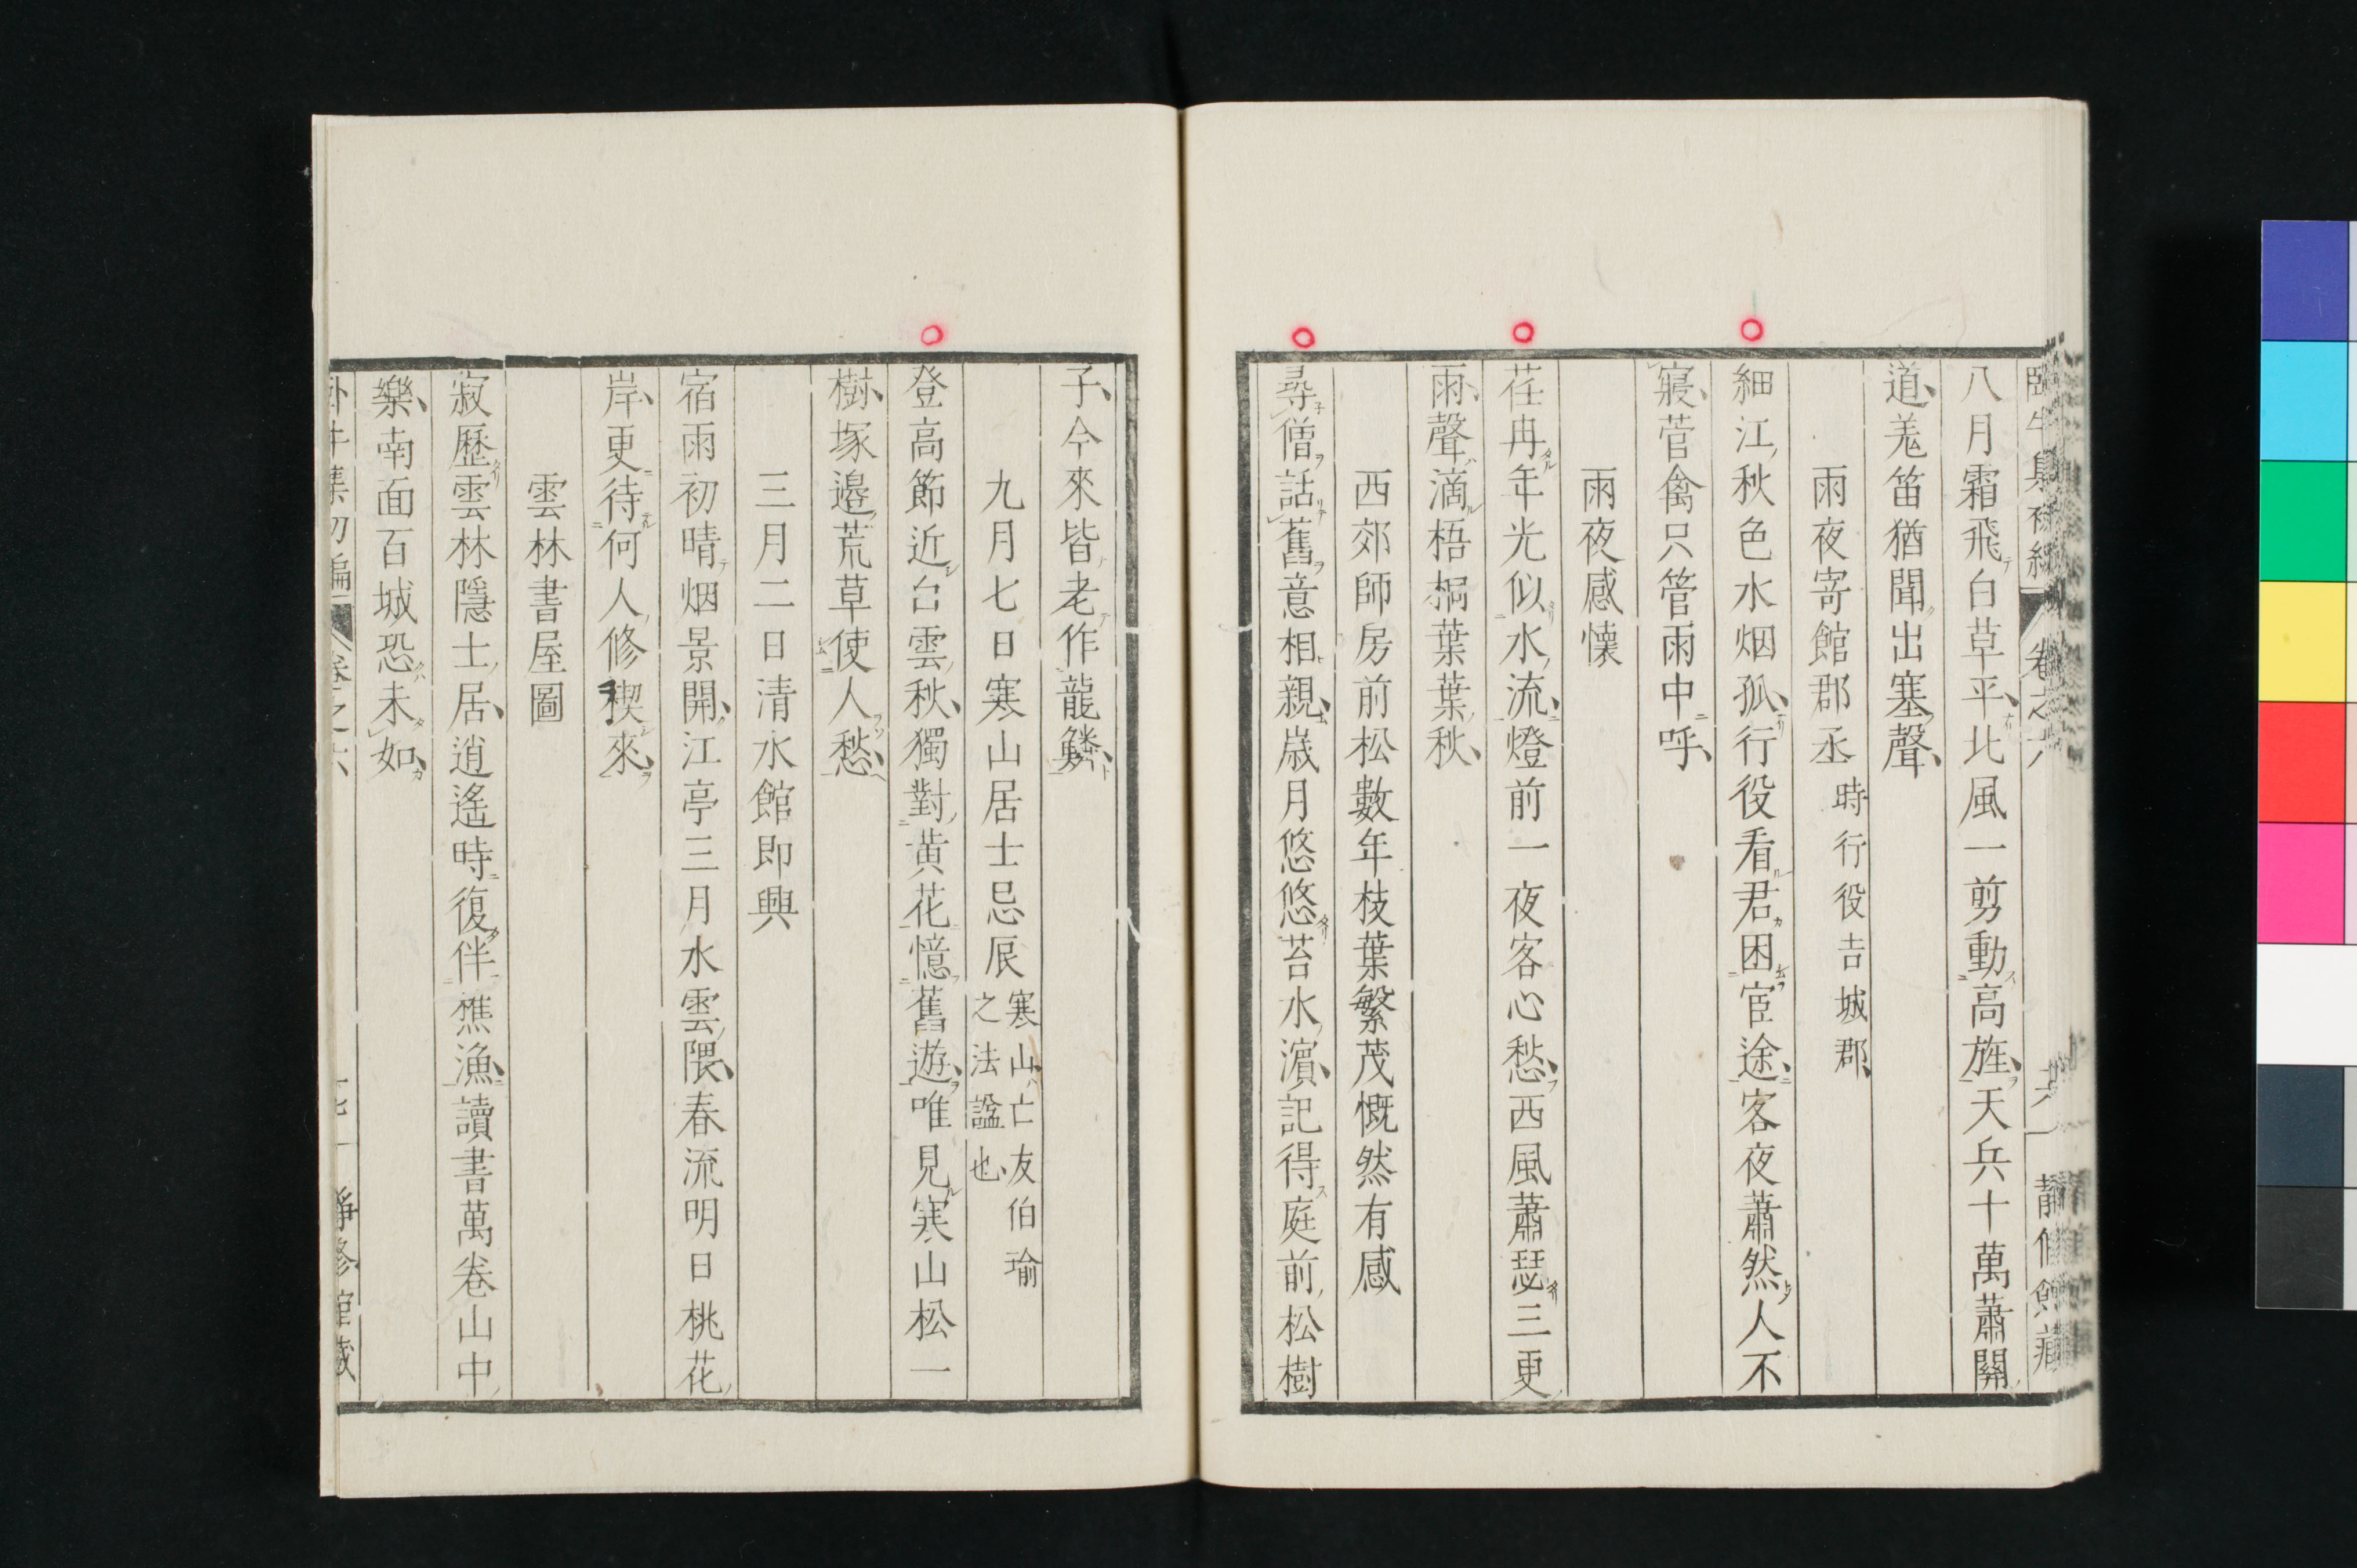 八月霜飛白草平北風一剪動高旌天兵十萬蕭關
道羌笛猶聞出塞聲
雨夜寄館郡丞時行役吉城郡
細江秋色水烟孤行役看君困宦途客夜蕭然人不
寢菅禽只管雨中呼
雨夜感懷
荏冉年光似水流燈前一夜客心愁西風蕭瑟三更
雨聲滴梧桐葉葉秋
西郊師房前松數年枝葉繁茂慨然有感
尋僧話舊意相親歲月悠悠苔水濵記得庭前松樹
子今來皆老作龍鱗
九月七日寒山居士忌辰寒山亡友伯瑜
之法諡也
登高節近白雲秋獨對黄花憶舊遊唯見寒山松一
樹塚邉荒草使人愁
三月二日清水館即興
宿雨初晴烟景開江亭三月水雲隈春流明日桃花
岸更待何人修禊來
雲林書屋圖
寂歷雲林隱士居逍遙時復伴樵漁讀書萬卷山中
樂南面百城恐未如